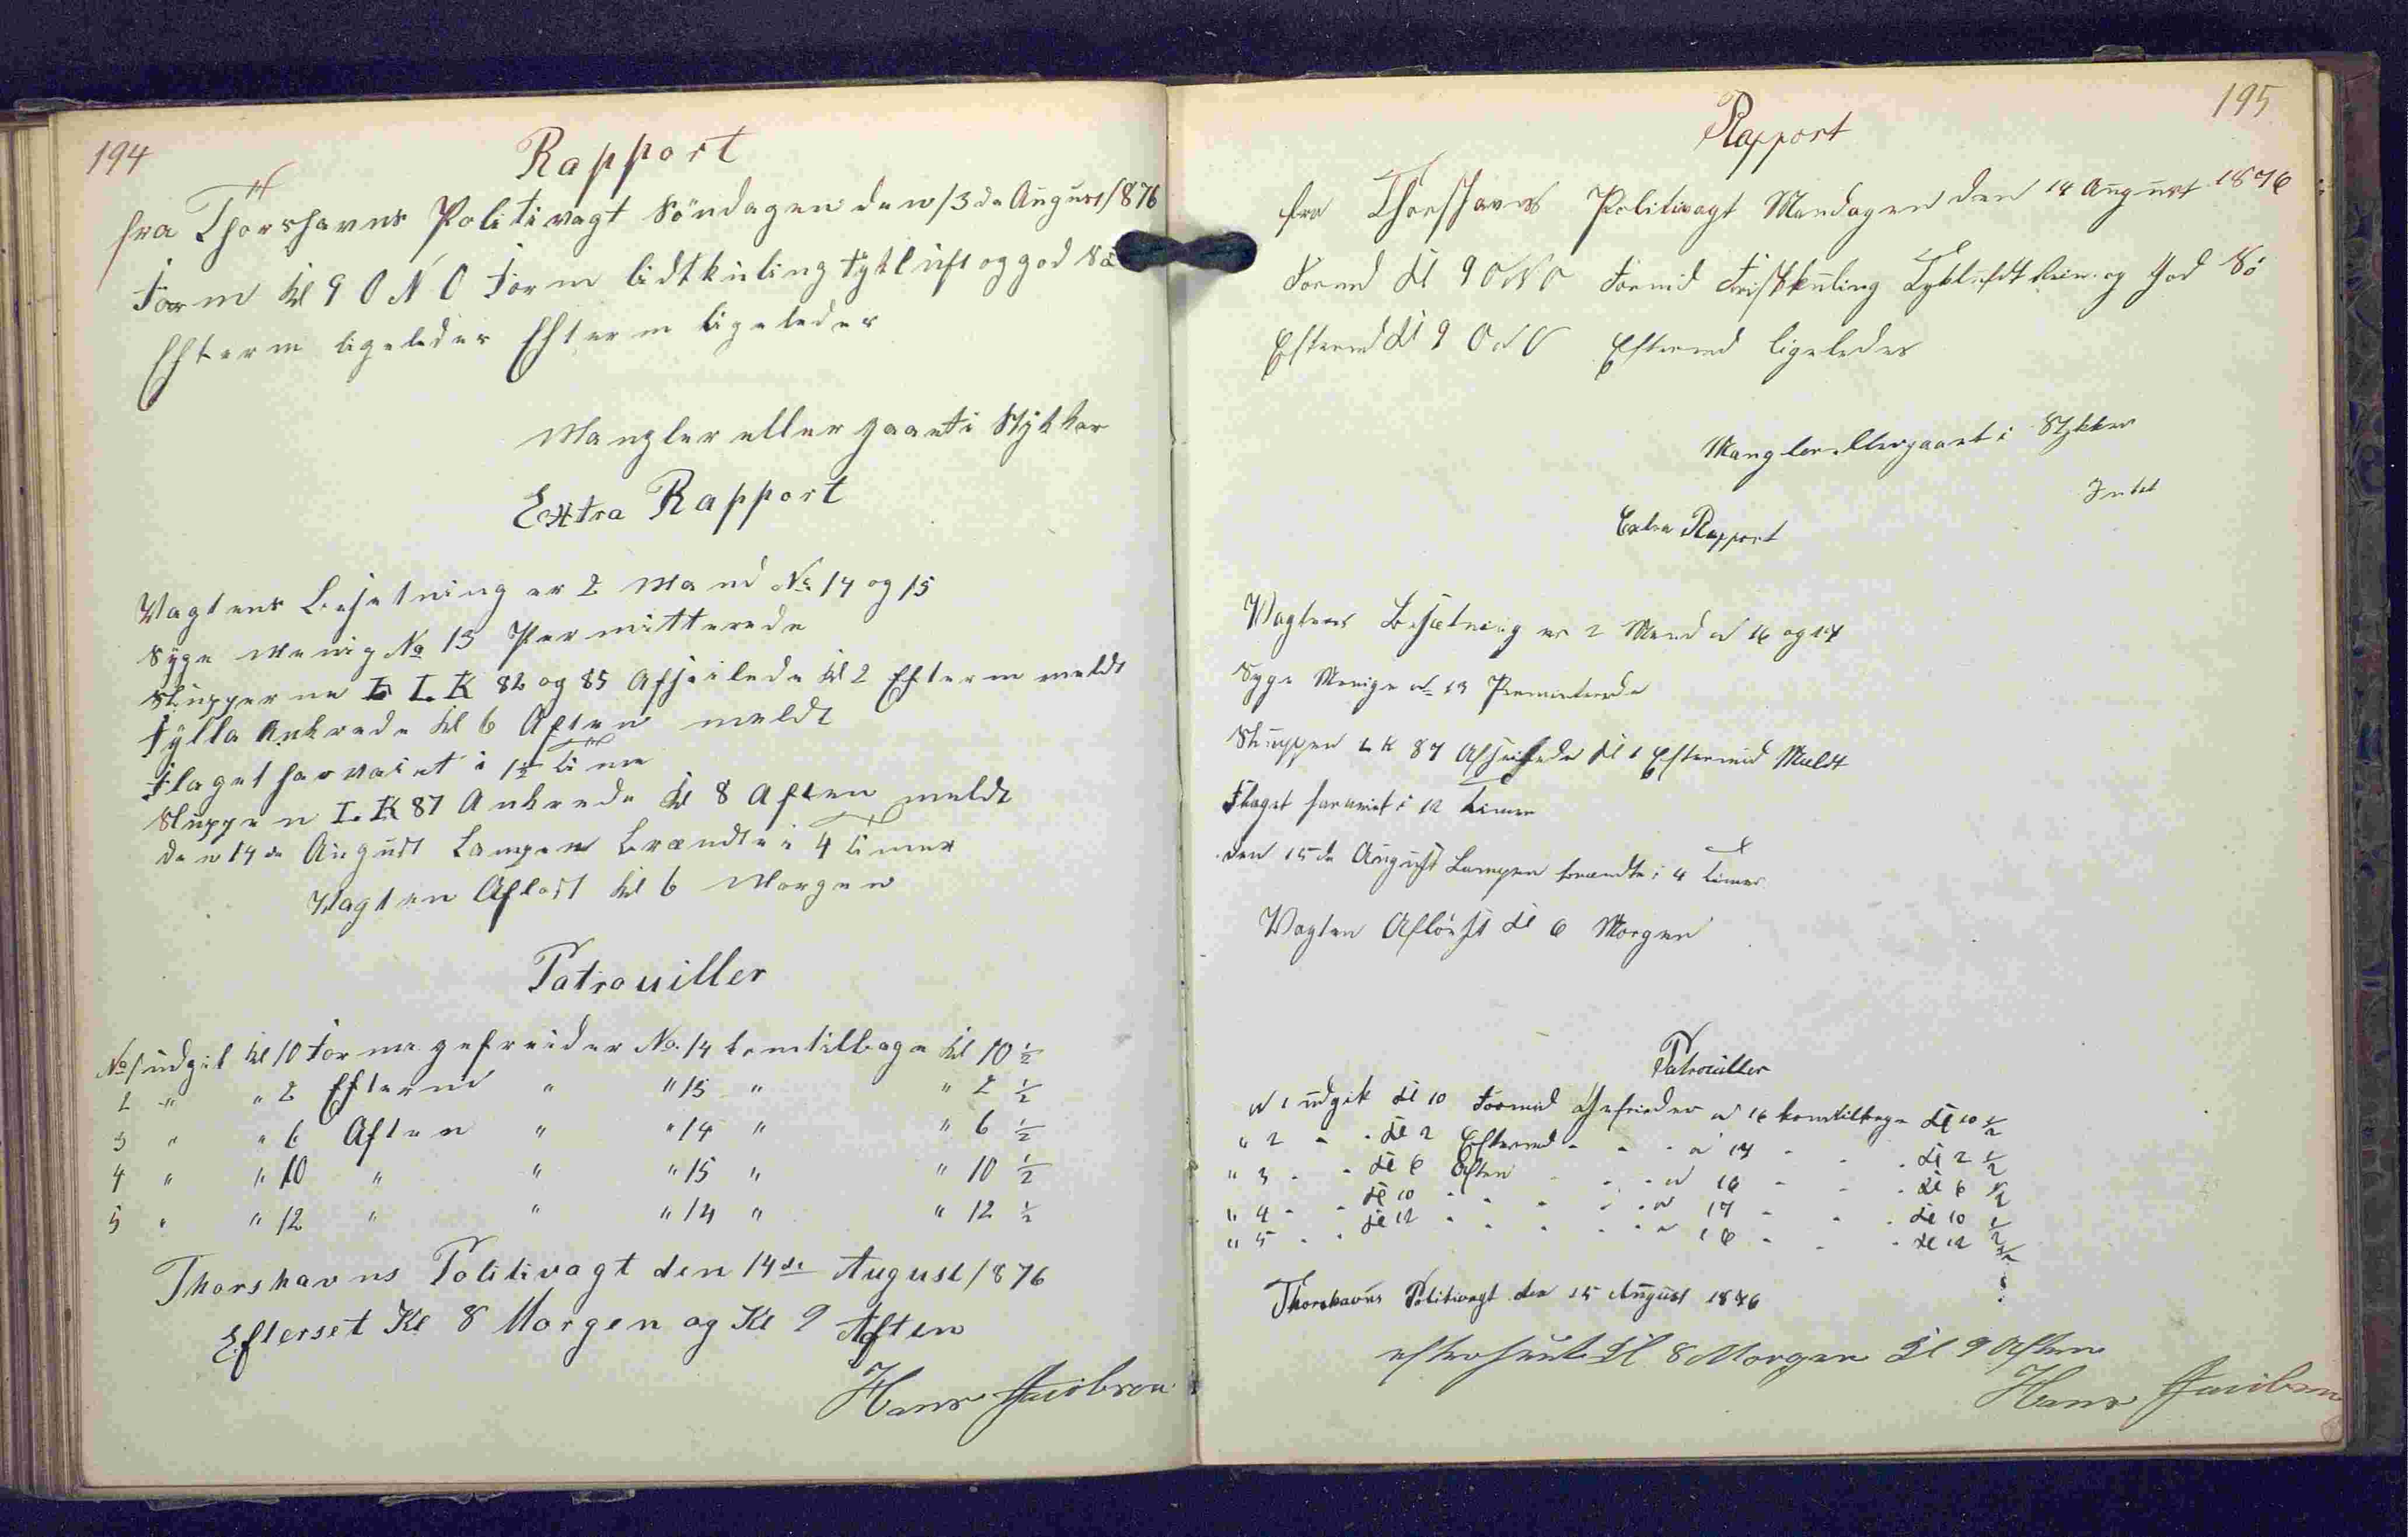 194
Rapport
fra Thorshavns Politivagt Söndagen den 13de August 1876
Form Kl 9 O N O Form lidtkuling tykluft og god Sö
Efterm ligeledes Efterm ligeledes
Mangler eller gaaet i Stykker
Extra Rapport
Vagtens Besetning er 2 Mand No 14 og 15
Syge Menig No 13 Permitterede
Slupperne L K 82 og 85 Afseilede Kl 2 Efterm meldt
Fylla Ankrede Kl 6 Aften meldt
Flaget har vaiet i 1½ Time
Sluppen L K 87 Ankrede Kl 8 Aften meldt
den 14de August Lampen Brændte i 4 Timer
Vagten Aflöst Kl 6 Morgen
Patrouiller
No 1 udgik Kl 10 Form gefreider No 14 kom tilbage Kl 10 ½
2 " " 2 Efterm " " 15 " " 2 ½
3 " " 6 Aften " " 14 " " 6 ½
4 " " 10 " " " 15 " " 10 ½
5 " " 12 " " " 14 " " 12 ½
Thorshavns Politivagt den 14de August 1876
Efterset Kl 8 Morgen og Kl 9 Aften
Hans Jacobsen
195
Rapport
fra Thorshavns Politivagt Mandagen den 14 August 1876
Formd Kl 9 O N O Formd Friskkuling Tykluft Rein og God Sö
Eftermd Kl 9 O N O Eftermd ligeledes
Mangler ellergaaet i Stykker
Intet
Extra Rapport
Vagtens Besætning er 2 Mand No 16 og 17
Syge Menige No 13 Permiterede
Sluppen L K 87 Afseilede Kl 1 Eftermid Meldt
Flaget har vaiet i 12 Timer
den 15de August Lampen brændte i 4 Timer
Vagten Aflöst Kl 6 Morgen
Patrouiller
N 1 udgik Kl 10 Formd Gefreider N 16 komtilbage Kl 10 ½
" 2 " " Kl 2 Eftermd " " " N 17 " " " Kl 2 ½
" 3 " " Kl 6 Aften " " " N 16 " " " Kl 6 ½
" 4 " " Kl 10 " " " " N 17 " " " Kl 10 ½
" 5 " " Kl 12 " " " " N 16 " " " Kl 12 ½
Thorshavns Politivagt den 15 August 1876
efterseet Kl 8 Morgen Kl 9 Aften
Hans Jacobsen